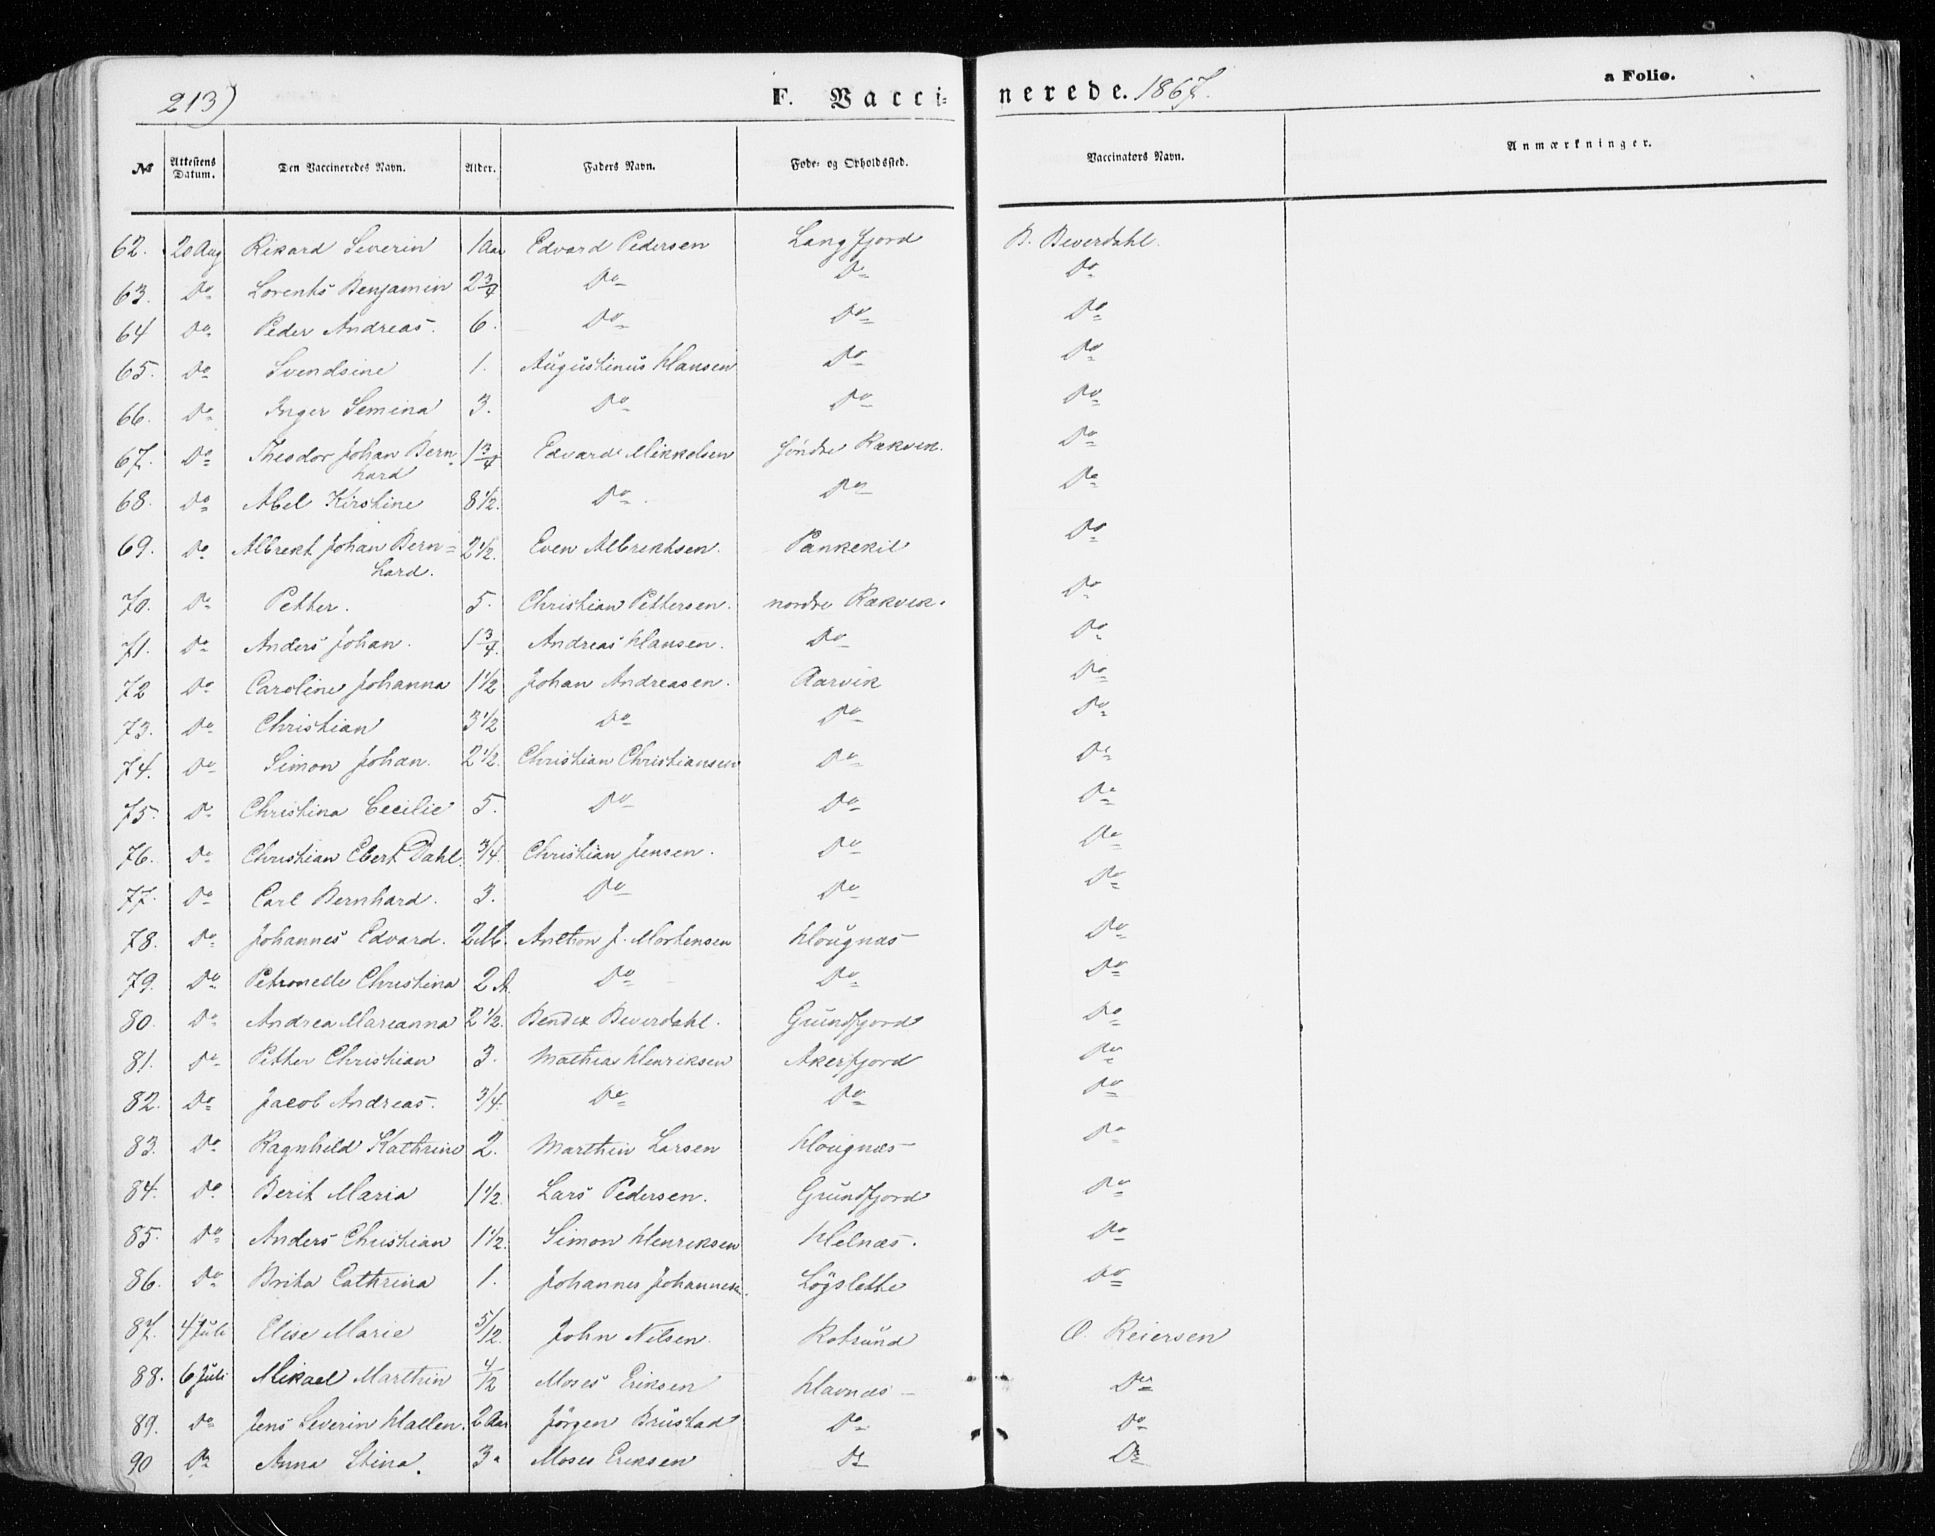 213)
F. Vacci-
nerede. 1867.
a Folio.
№ Attestens Datum. Den Vaccineredes Navn. Alder. Faders Navn. Føde- og Opholdssted. Vaccinators Navn. Anmærkninger.
62. 20 Aug Rikard Severin 1 Aar Edvard Pedersen Langfjord B. Beverdahl.
63. Do Lorents Benjamin 2 3/4 Do Do Do
64 Do Peder Andreas. 6. Do Do Do
65. Do Svendsine 1. Augustinus Hansen Do Do
66. Do Inger Semina 3. Do Do Do
67. Do Theodor Johan Bern- 1 3/4 Edvard Mikkelsen søndre Rækvik. Do
hard
68. Do Abel Kirstine 8 1/2. Do Do Do
69. Do Albrekt Johan Bern= 2 1/2. Even Albrektsen. Pankekil Do
hard.
70. Do Petter. 5. Christian Pettersen. nordre Rækvik. Do
71. Do Anders Johan. 1 3/4. Andreas Hansen. Do Do
72 Do Caroline Johanna 1 1/2 Johan Andreasen. Aarvik Do
73. Do Christian 3 1/2 Do Do Do
74. Do Simon Johan. 2 1/2. Christian Christiansen Do Do
75. Do Christina Cecilie 5. Do Do Do
76. Do Christian Ebert Dahl. 3/4. Christian Jensen. Do Do
77. Do Carl Bernhard. 3. Do Do Do
78. Do Johannes Edvard. 2 M. Anthon J. Mortensen Hougnæs Do
79. Do Petronelle Christina 2 A. Do Do Do
80. Do Andrea Mareanna 2 1/2. Bendix Beverdahl. Grundfjord Do
81. Do Petter Christian 3. Mathias Henriksen Akerfjord Do
82. Do Jacob Andreas. 3/4. Do Do Do
83. Do Ragnhild Kathrine 2. Marthin Larsen Hougnæs Do
84. Do Berit Maria 1 1/2. Lars Pedersen. Grundfjord Do
85. Do Anders Christian 1 1/2. Simon Henriksen Helnæs. Do
86. Do Brita Cathrina 1. Johannes Johannesen. Løgslette Do
87. 4 Juli Elise Marie 5/12. John Nilsen. Rotsund O. Reiersen
88. 6 Juli Mikael Marthin 4/12 Moses Eriksen Havnæs Do
89. Do Jens Severin Hallen. 2 Aar Jørgen Brustad Do Do
90 Do Anna Stina. 3 Moses Eriksen Do Do